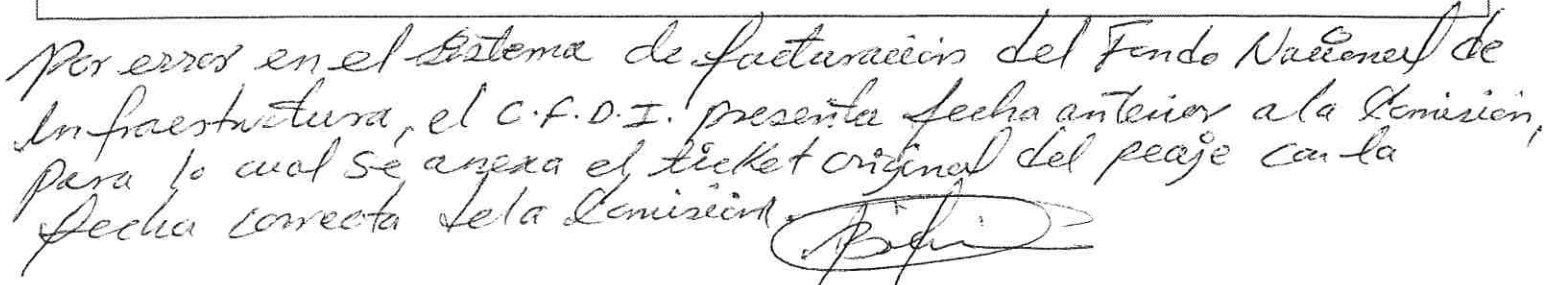 Por error en el Sistema de facturación del Fondo Nacional de
Infraestructura, el C.F.D.I. presenta fecha anterior a la Comisión,
para lo cual se anexa el ticket original del peaje con la
fecha correcta de la Comisión.